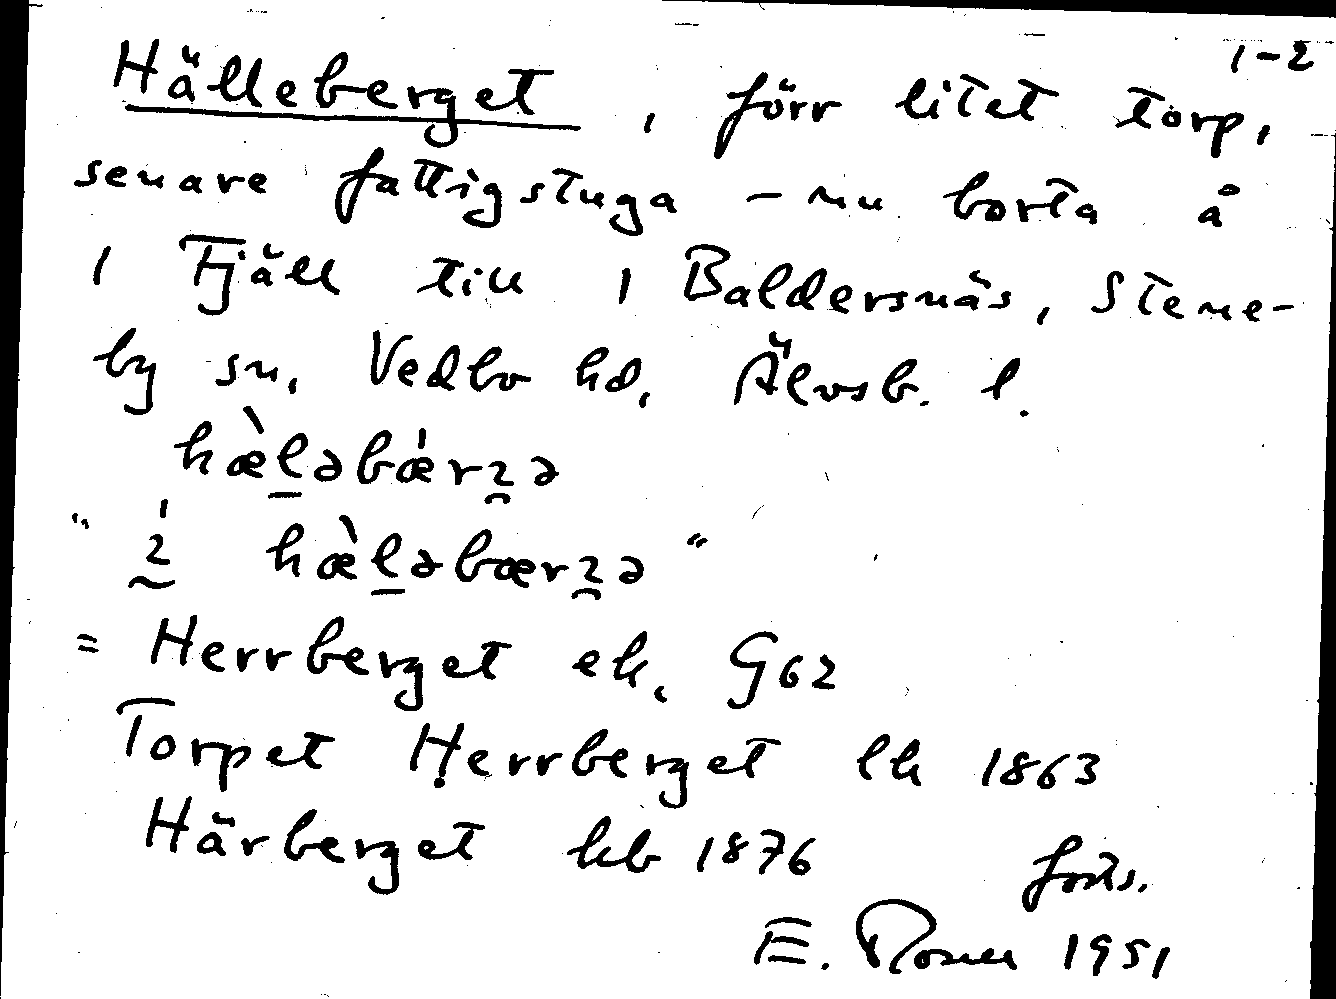 1-2
Hälleberget, förr litet torp,
senare fattigstuga - nu borta å
1 Fjäll till 1 Baldersnäs, Stene-
by sn, Vedbo hd, Älvsb. l.
hæ̀l̲əbǽrꝛ̯ə
" hæ̀l̲əbærꝛ̯ə "
= Herrberget ek. G62
Torpet Herrberget lk 1863
Härberget kb 1876 forts.
E. Rosell 1951